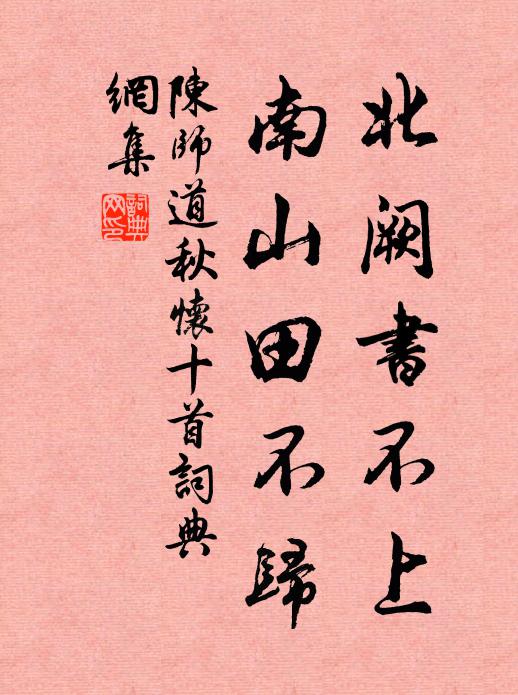 北阙書不上
南山田不歸
陳師道秋懷十首詞典
網集
詞典
网印